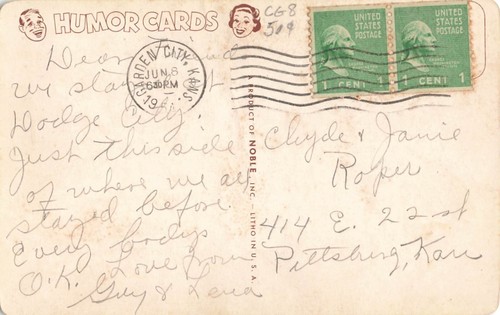 HUMOR CARDS
CG8
50¢
UNITED STATES POSTAGE
1 CENT 1
UNITED STATES POSTAGE
1 CENT 1
GARDEN CITY, KANS.
JUN 6
630PM
19
Dear
we stay
Dodge City.
Just this side
of where we all
stayed before.
Every bodys
O.K. Love from
Guy & Lena
A PRODUCT OF NOBLE, INC. - LITHO IN U. S. A.
Clyde & Janie
Roper
414 E. 22 st
Pittsburg, Kan